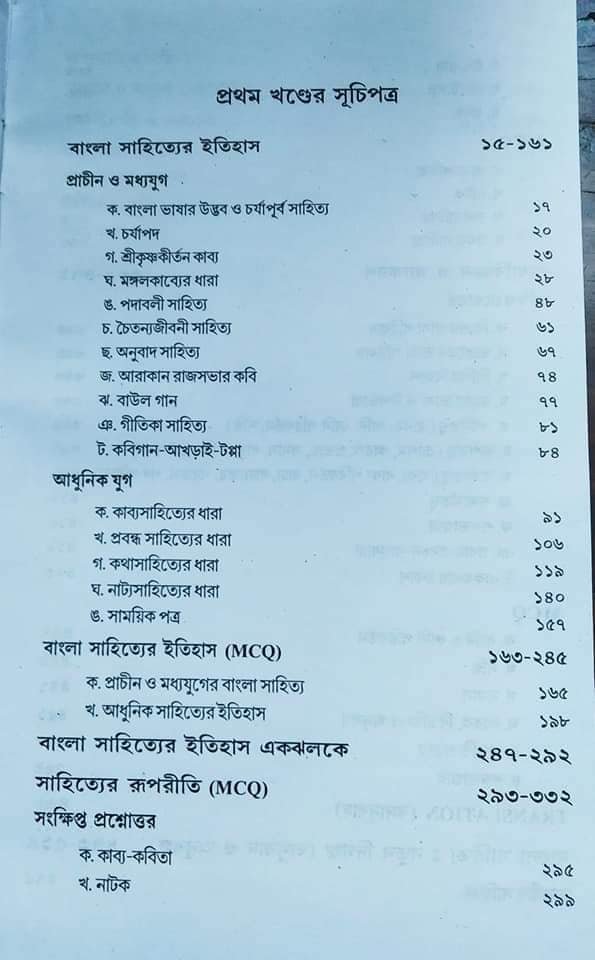 প্রথম খণ্ডের সূচিপত্র
বাংলা সাহিত্যের ইতিহাস ১৫-১৬১
প্রাচীন ও মধ্যযুগ
ক. বাংলা ভাষার উদ্ভব ও চর্যাপূর্ব সাহিত্য ১৭
খ. চর্যাপদ ২০
গ. শ্রীকৃষ্ণকীর্তন কাব্য ২৩
ঘ. মঙ্গলকাব্যের ধারা ২৮
ঙ. পদাবলী সাহিত্য ৪৮
চ. চৈতন্যজীবনী সাহিত্য ৬১
ছ. অনুবাদ সাহিত্য ৬৭
জ. আরাকান রাজসভার কবি ৭৪
ঝ. বাউল গান ৭৭
ঞ. গীতিকা সাহিত্য ৮১
ট. কবিগান-আখড়াই-টপ্পা ৮৪
আধুনিক যুগ
ক. কাব্যসাহিত্যের ধারা ৯১
খ. প্রবন্ধ সাহিত্যের ধারা ১০৬
গ. কথাসাহিত্যের ধারা ১১৯
ঘ. নাট্যসাহিত্যের ধারা ১৪০
ঙ. সাময়িক পত্র ১৫৭
বাংলা সাহিত্যের ইতিহাস (MCQ) ১৬৩-২৪৫
ক. প্রাচীন ও মধ্যযুগের বাংলা সাহিত্য ১৬৫
খ. আধুনিক সাহিত্যের ইতিহাস ১৯৮
বাংলা সাহিত্যের ইতিহাস একঝলকে ২৪৭-২৯২
সাহিত্যের রূপরীতি (MCQ) ২৯৩-৩৩২
সংক্ষিপ্ত প্রশ্নোত্তর
ক. কাব্য-কবিতা ২৯৫
খ. নাটক ২৯৯